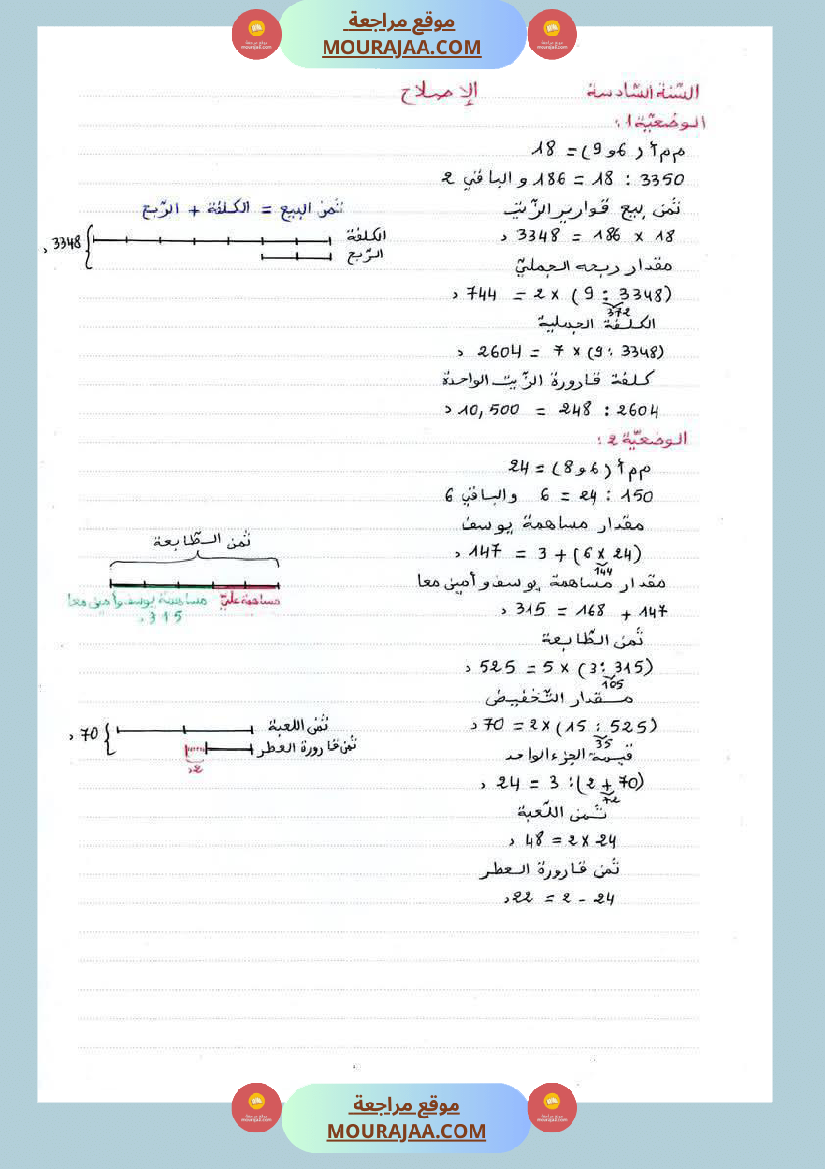 موقع مراجعة
MOURAJAA.COM
السّنة السّادسة
الإصلاح
الوضعيّة 1 :
م م أ ( 6 و 9 ) = 18
3350 : 18 = 186 و الباقي 2
ثمن بيع قوارير الزّيت
18 × 186 = 3348 د
ثمن البيع = الكلفة + الرّبح
الكلفة
الرّبح
3348 د
مقدار ربحه الجمليّ
(3348 : 9) × 2 = 744 د
372
الكلفة الجملية
(3348 : 9) × 7 = 2604 د
كلفة قارورة الزّيت الواحدة
2604 : 248 = 10,500 د
الوضعيّة 2 :
م م أ ( 6 و 8 ) = 24
150 : 24 = 6 والباقي 6
مقدار مساهمة يوسف
(24 × 6) + 3 = 147 د
144
مقدار مساهمة يوسف و أمين معا
147 + 168 = 315 د
ثمن الطّابعة
مساهمة عليّ
مساهمة يوسف وأمين معا
315 د
ثمن الطّابعة
(315 : 3) × 5 = 525 د
105
مقدار التّخفيض
(525 : 15) × 2 = 70 د
35
ثمن اللعبة
ثمن قارورة العطر
70 د
2د
قيمة الجزء الواحد
(70 + 2) : 3 = 24 د
72
ثمن اللّعبة
24 × 2 = 48 د
ثمن قارورة العطر
24 - 2 = 22 د
موقع مراجعة
MOURAJAA.COM